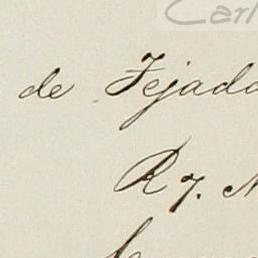 Carl
de Tejada
R 7.